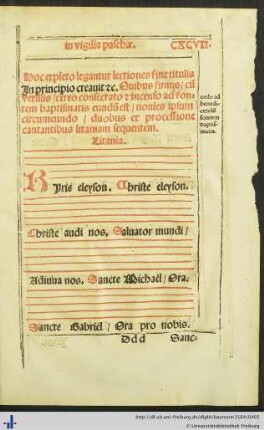 in vigilia paschæ. CXCVII.
Hoc expleto legantur lectiones sine titulis
In principio creauit ⁊c. Quibus finitis / cū
vexillis / cereo consecrato ⁊ incenso ad fon-
tem baptismatis eundū est / nouies ipsum
circumeundo / duobus ex processione
cantantibus litaniam sequentem.
Modo ad
benedi-
cendū
fontem
baptis-
matis.
Litania.
Kyris eleyson. Christe eleyson.
Christe audi nos. Saluator mundi /
Adiuua nos. Sancte Michaël / Ora.
Sancte Gabriel / Ora pro nobis.
Ddd Sanc-
http://dl.ub.uni-freiburg.de/diglit/
© Universitätsbibliothek Freiburg